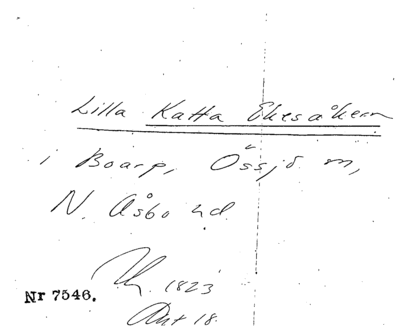 Lilla Katta Ekesåkern
i Boarp, Össjö sn,
N. Åsbo hd.
1823
Nr 7546.
Akt 18.